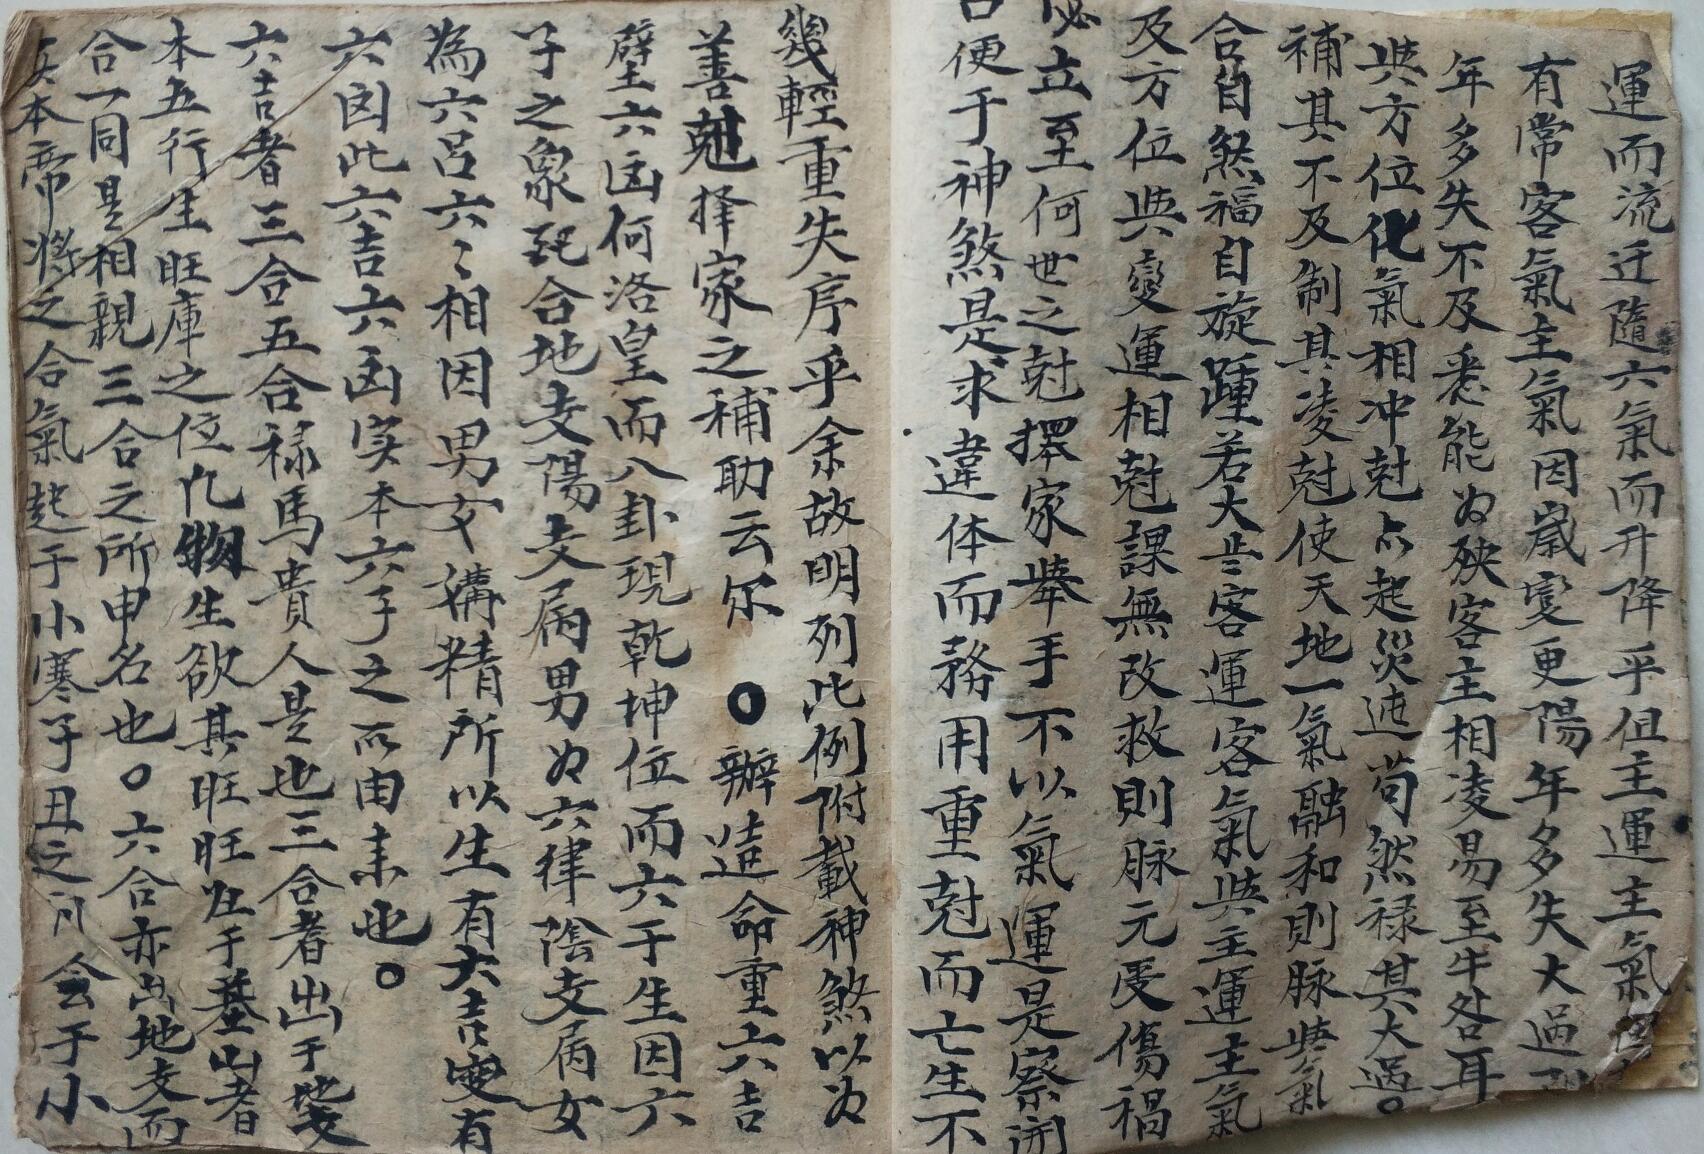 運而流迁隨六氣而升降乎但主運主氣
有常客氣主氣因歲變更陽年多失大過
年多失不及悉能为殃客主相凌易至牛咎耳
與方位化氣相冲尅占起災迍苟然祿其大過。
補其不及制其凌尅使天地一氣融和則脉與氣
合自煞福自旋踵若大定客運客氣與主運主氣
及方位與變運相尅課無改救則脉元受傷禍
必立至何世之尅擇家舉手不以氣運是察
便于神煞是求違体而務用重尅而亡生不
幾輕重失序乎余故明列此例附載神煞以为
善尅择家之補助云尔 ○辦造命重六吉
壁六凶何洛皇而八卦現乾坤位而六子生因六
子之象配合地支陽支屬男为六律陰支屬女
為六呂六〻相因男女媾精所以生有六吉变有
六凶此六吉六凶实本六子之所由來也。
六吉者三合五合祿馬貴人是也三合者出于地支
本五行生旺庫之位凡物生欲其旺旺庄于墓山者
合一同是相親三合之所申名也○六合亦出地支而
其本帝将之合氣起于小寒子丑之月会于小